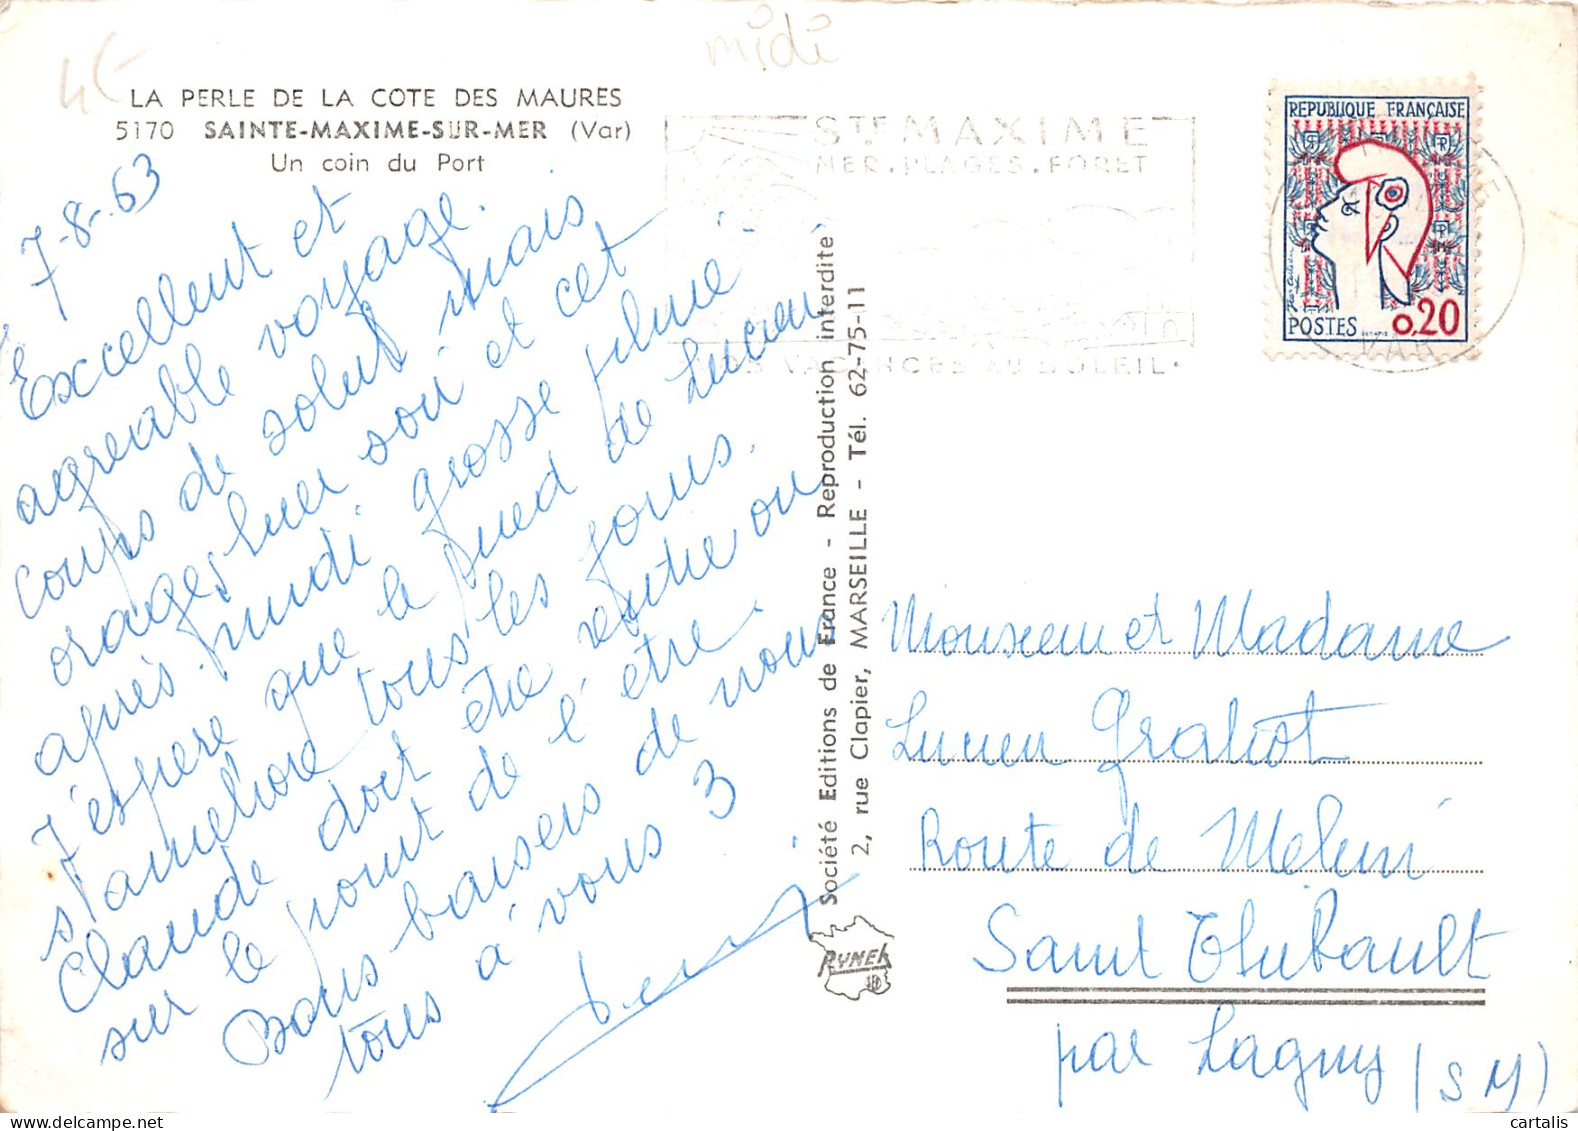 midi
4€
LA PERLE DE LA COTE DES MAURES
5170 SAINTE-MAXIME-SUR-MER (Var)
Un coin du Port
7-8-63
Excellent et
agreable voyage.
coups de soleil mais
orages hier soir et cet
après-midi grosse pluie
J'espère que le pied de Lucien
s'améliore tous les jours.
Claude doit être rentré ou
sur le point de l'être
Bons baisers de nous
tous à vous 3
Société Editions de France - Reproduction interdite
2, rue Clapier, MARSEILLE - Tél. 62-75-11
RYNER
STE MAXIME
MER.PLAGES.FORET
VACANCES AU SOLEIL.
REPUBLIQUE FRANÇAISE
POSTES 0,20
VAR
Monsieur et Madame
Lucien Graliot
Route de Melun
Saint Thibault
par Lagny (S M)
cartalis